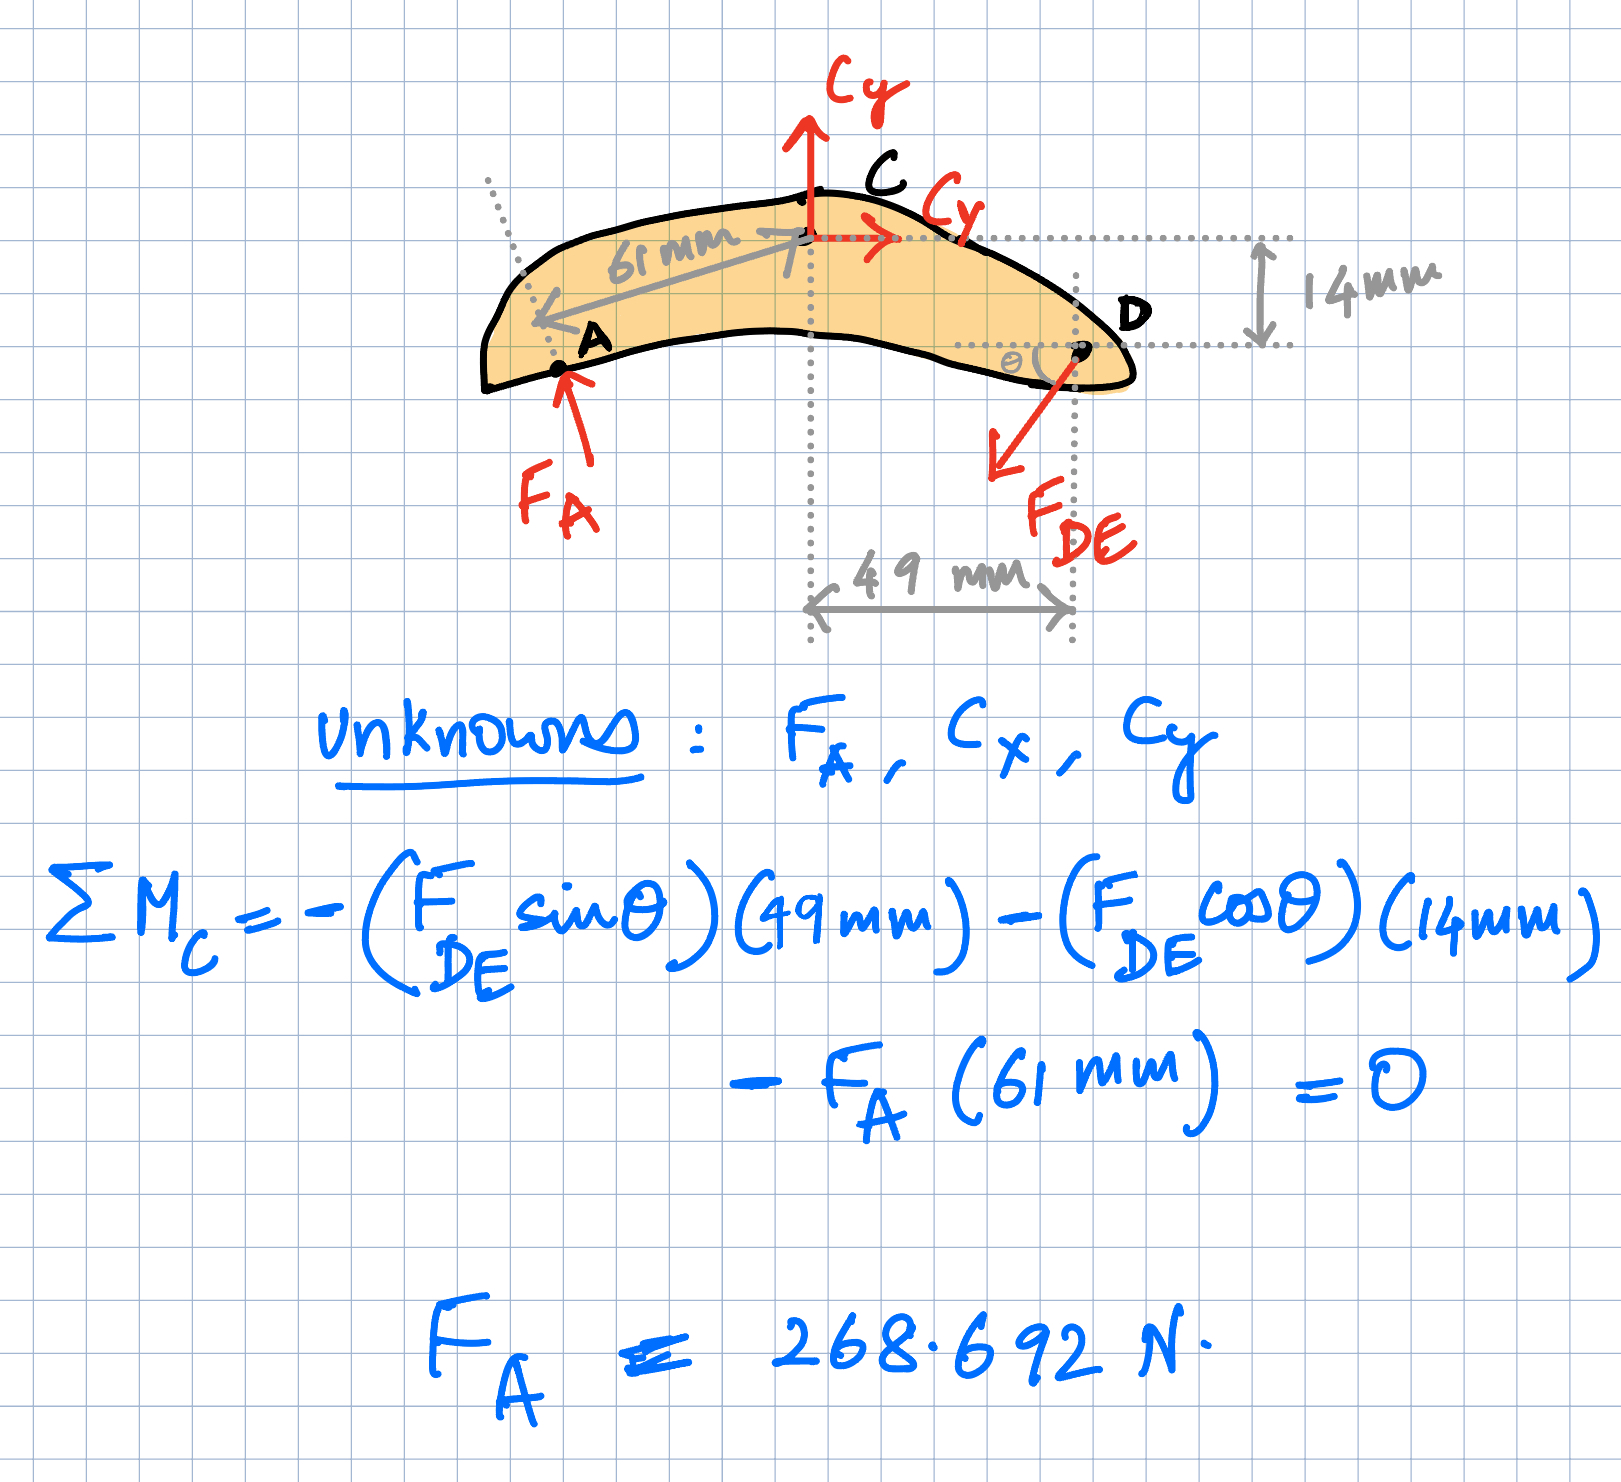 Cy
C
Cy
61 mm
14mm
D
A
θ
F_A
F_DE
49 mm
unknowns : F_A, C_x, C_y
ΣM_C = -(F_DE sinθ)(49mm) - (F_DE cosθ)(14mm)
- F_A (61 mm) = 0
F_A = 268.692 N.